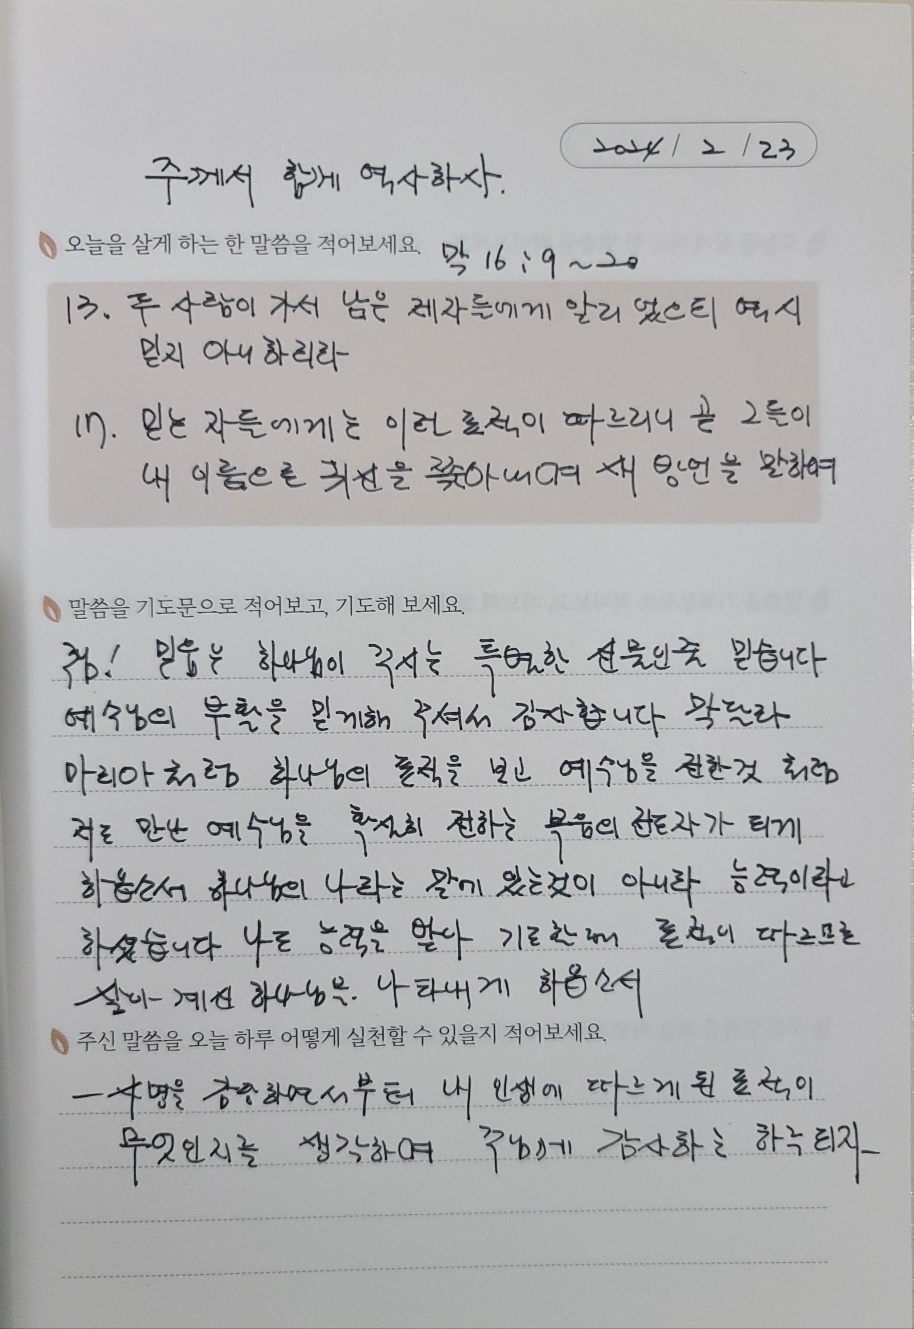 2024 / 2 / 23
주께서 함께 역사하사.
오늘을 살게 하는 한 말씀을 적어보세요.
막 16 : 9 ~ 20
13. 두 사람이 가서 남은 제자들에게 알리었으되 역시
믿지 아니하리라
17. 믿는 자들에게는 이런 표적이 따르리니 곧 그들이
내 이름으로 귀신을 쫓아내며 새 방언을 말하며
말씀을 기도문으로 적어보고, 기도해 보세요.
주님! 믿음은 하나님이 주시는 특별한 선물인줄 믿습니다
예수님의 부활을 믿게해 주셔서 감사합니다 막달라
마리아 처럼 하나님의 표적을 보고 예수님을 전한것 처럼
저도 만난 예수님을 확실히 전하는 복음의 전도자가 되게
하옵소서 하나님의 나라는 말에 있는것이 아니라 능력이라고
하셨습니다 나도 능력을 받아 기도할때 표적이 따르므로
살아 계신 하나님을 나타내게 하옵소서
주신 말씀을 오늘 하루 어떻게 실천할 수 있을지 적어보세요.
– 사명을 감당하면서부터 내 인생에 따르게 된 표적이
무엇인지를 생각하며 주님에게 감사하는 하루 되자